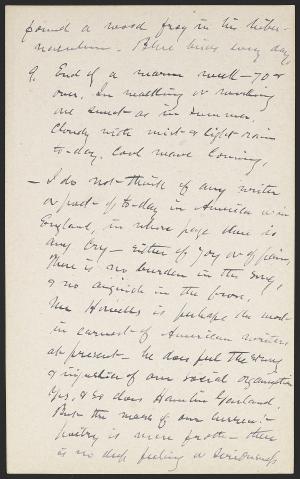 found a wood frog in his hiber-
naculum. Blue birds every day
9. End of a warm week – 70 or
over. In walking or working
one sweat as in summer.
Cloudy with mist & light rain
to-day. Cool wave coming.
– I do not think of any writer
or poet of to-day in America or in
England, in whose page there is
any cry – either of joy or of pain,
There is no burden in the song,
& no anguish in the prose.
Mr Howells is perhaps the most
in earnest of American writers
at present – he does feel the wrong
& injustice of our social organization
Yes, & so does Hamlin Garland.
But the mass of our current
poetry is mere froth – there
is no deep feeling or seriousness